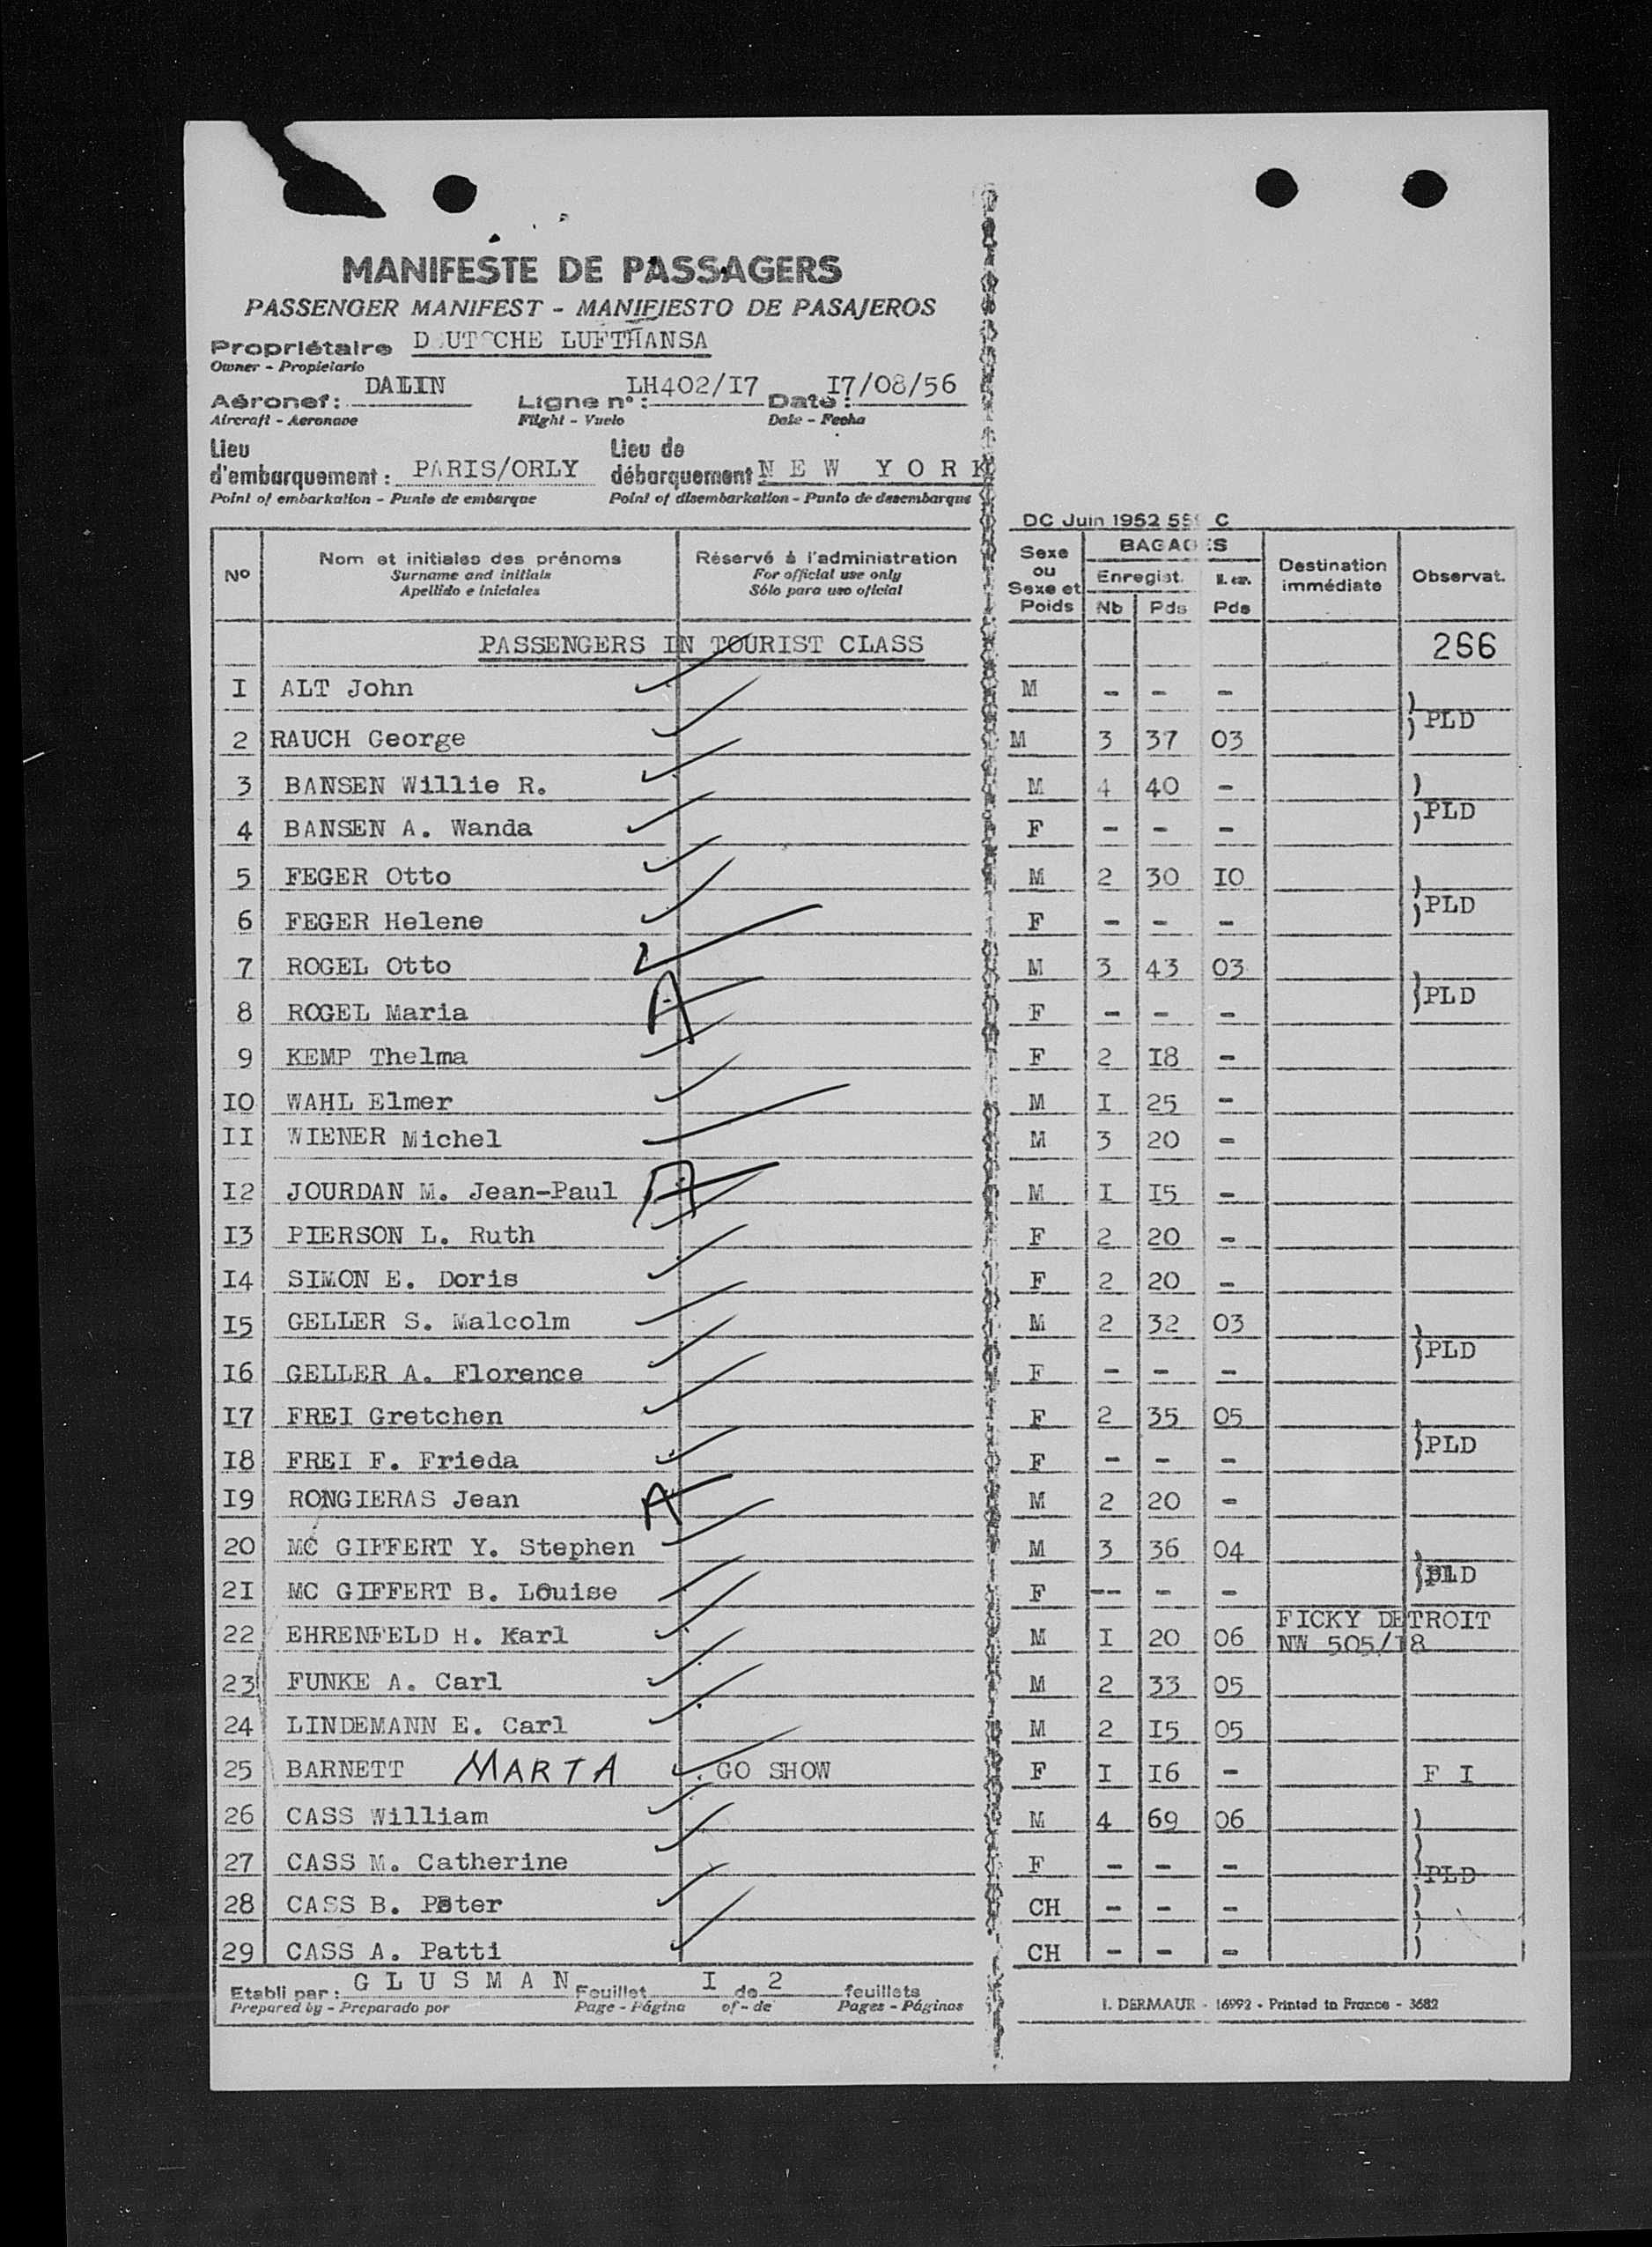 MANIFESTE DE PASSAGERS
PASSENGER MANIFEST - MANIFIESTO DE PASAJEROS
Propriétaire DEUTSCHE LUFTHANSA
Owner - Propietario
Aéronef: DALIN Ligne n°: LH402/I7 Date: I7/08/56
Aircraft - Aeronave Flight - Vuelo Date - Fecha
Lieu d'embarquement: PARIS/ORLY Lieu de débarquement NEW YORK
Point of embarkation - Punto de embarque Point of disembarkation - Punto de desembarque
DC Juin 1952 C
N° Nom et initiales des prénoms Réservé à l'administration Sexe ou Sexe et Poids BAGAGES Destination immédiate Observat.
Surname and initials For official use only Enregist.
Apellido e iniciales Sólo para uso oficial Nb Pds Pds
PASSENGERS IN TOURIST CLASS 266
I ALT John M - - -
) PLD
2 RAUCH George M 3 37 03
3 BANSEN Willie R. M 4 40 - )
4 BANSEN A. Wanda F - - - ) PLD
5 FEGER Otto M 2 30 IO )
6 FEGER Helene F - - - ) PLD
7 ROGEL Otto M 3 43 03
8 ROGEL Maria A F - - - } PLD
9 KEMP Thelma F 2 I8 -
IO WAHL Elmer M I 25 -
II WIENER Michel M 3 20 -
I2 JOURDAN M. Jean-Paul A M I I5 -
I3 PIERSON L. Ruth F 2 20 -
I4 SIMON E. Doris F 2 20 -
I5 GELLER S. Malcolm M 2 32 03
I6 GELLER A. Florence F - - - } PLD
I7 FREI Gretchen F 2 35 05
I8 FREI F. Frieda F - - - } PLD
I9 RONGIERAS Jean A M 2 20 -
20 MC GIFFERT Y. Stephen M 3 36 04
21 MC GIFFERT B. Louise F -- - - } PLD
22 EHRENFELD H. Karl M I 20 06 FICKY DETROIT
NW 505/I8
23 FUNKE A. Carl M 2 33 05
24 LINDEMANN E. Carl M 2 I5 05
25 BARNETT MARTA GO SHOW F I I6 - F I
26 CASS William M 4 69 06 )
27 CASS M. Catherine F - - - ) PLD
28 CASS B. Peter CH - - - )
29 CASS A. Patti CH - - - )
Etabli par: GLUSMAN Feuillet I de 2 feuillets
Prepared by - Preparado por Page - Página of - de Pages - Páginas I. DERMAUR - 16992 - Printed in France - 3682